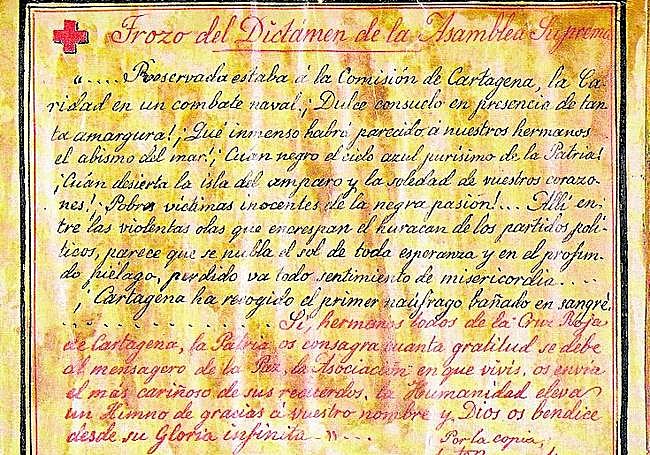 Trozo del Dictámen de la Asamblea Suprema
"....Reservada estaba á la Comisión de Cartagena, la Ca-
ridad en un combate naval. ¡Dulce consuelo en presencia de tan-
ta amargura! ¡Qué inmenso habrá parecido á nuestros hermanos
el abismo del mar! ¡Cuán negro el cielo azul purísimo de la Patria!
¡Cuán desierta la isla del amparo y la soledad de vuestros corazo-
nes! ¡Pobres victimas inocentes de la negra pasion!... Allí en-
tre las violentas olas que encrespan el huracan de los partidos poli-
ticos, parece que se nubla el sol de toda esperanza y en el profun-
do piélago, perdido va todo sentimiento de misericordia....
¡Cartagena ha recogido el primer náufrago bañado en sangre!
.......... Si, hermanos todos de la Cruz Roja
de Cartagena, la Patria os consagra cuanta gratitud se debe
al mensagero de la Paz, la Asociacion en que vivis, os envia
el más cariñoso de sus recuerdos, la Humanidad eleva
un Himno de gracias á vuestro nombre y Dios os bendice
desde su Gloria infinita "...
Por la copia,